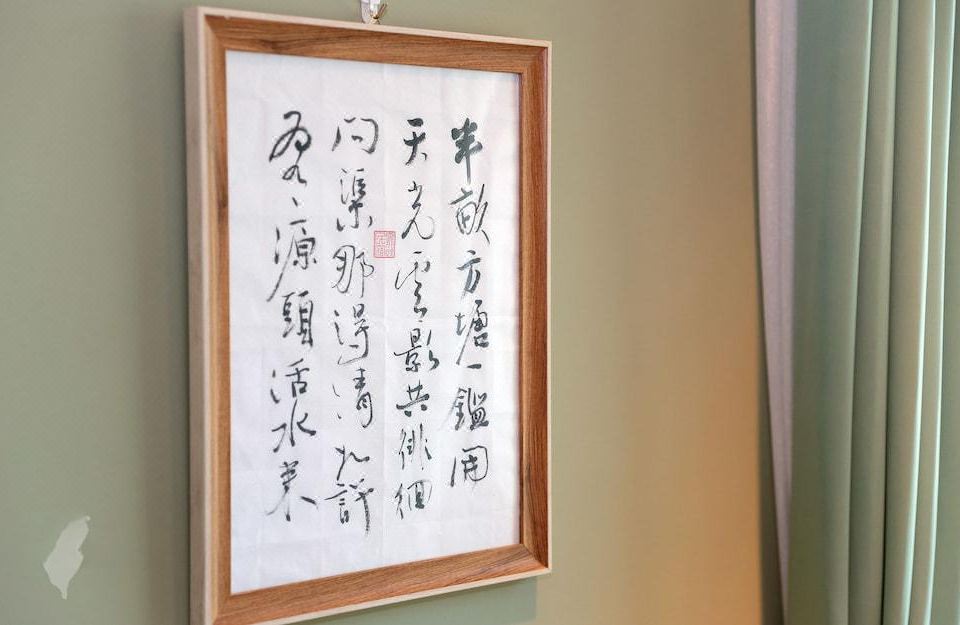 半畝方塘一鑑開
天光雲影共徘徊
問渠那得清如許
為有源頭活水來